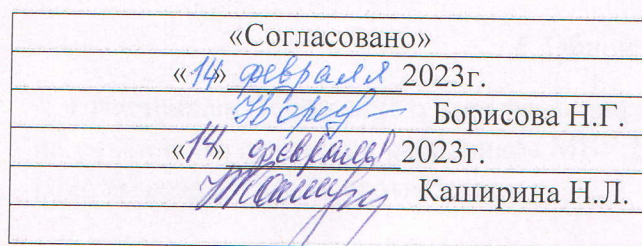 «Согласовано»
«14» февраля 2023г.
Борисова Н.Г.
«14» февраля 2023г.
Каширина Н.Л.